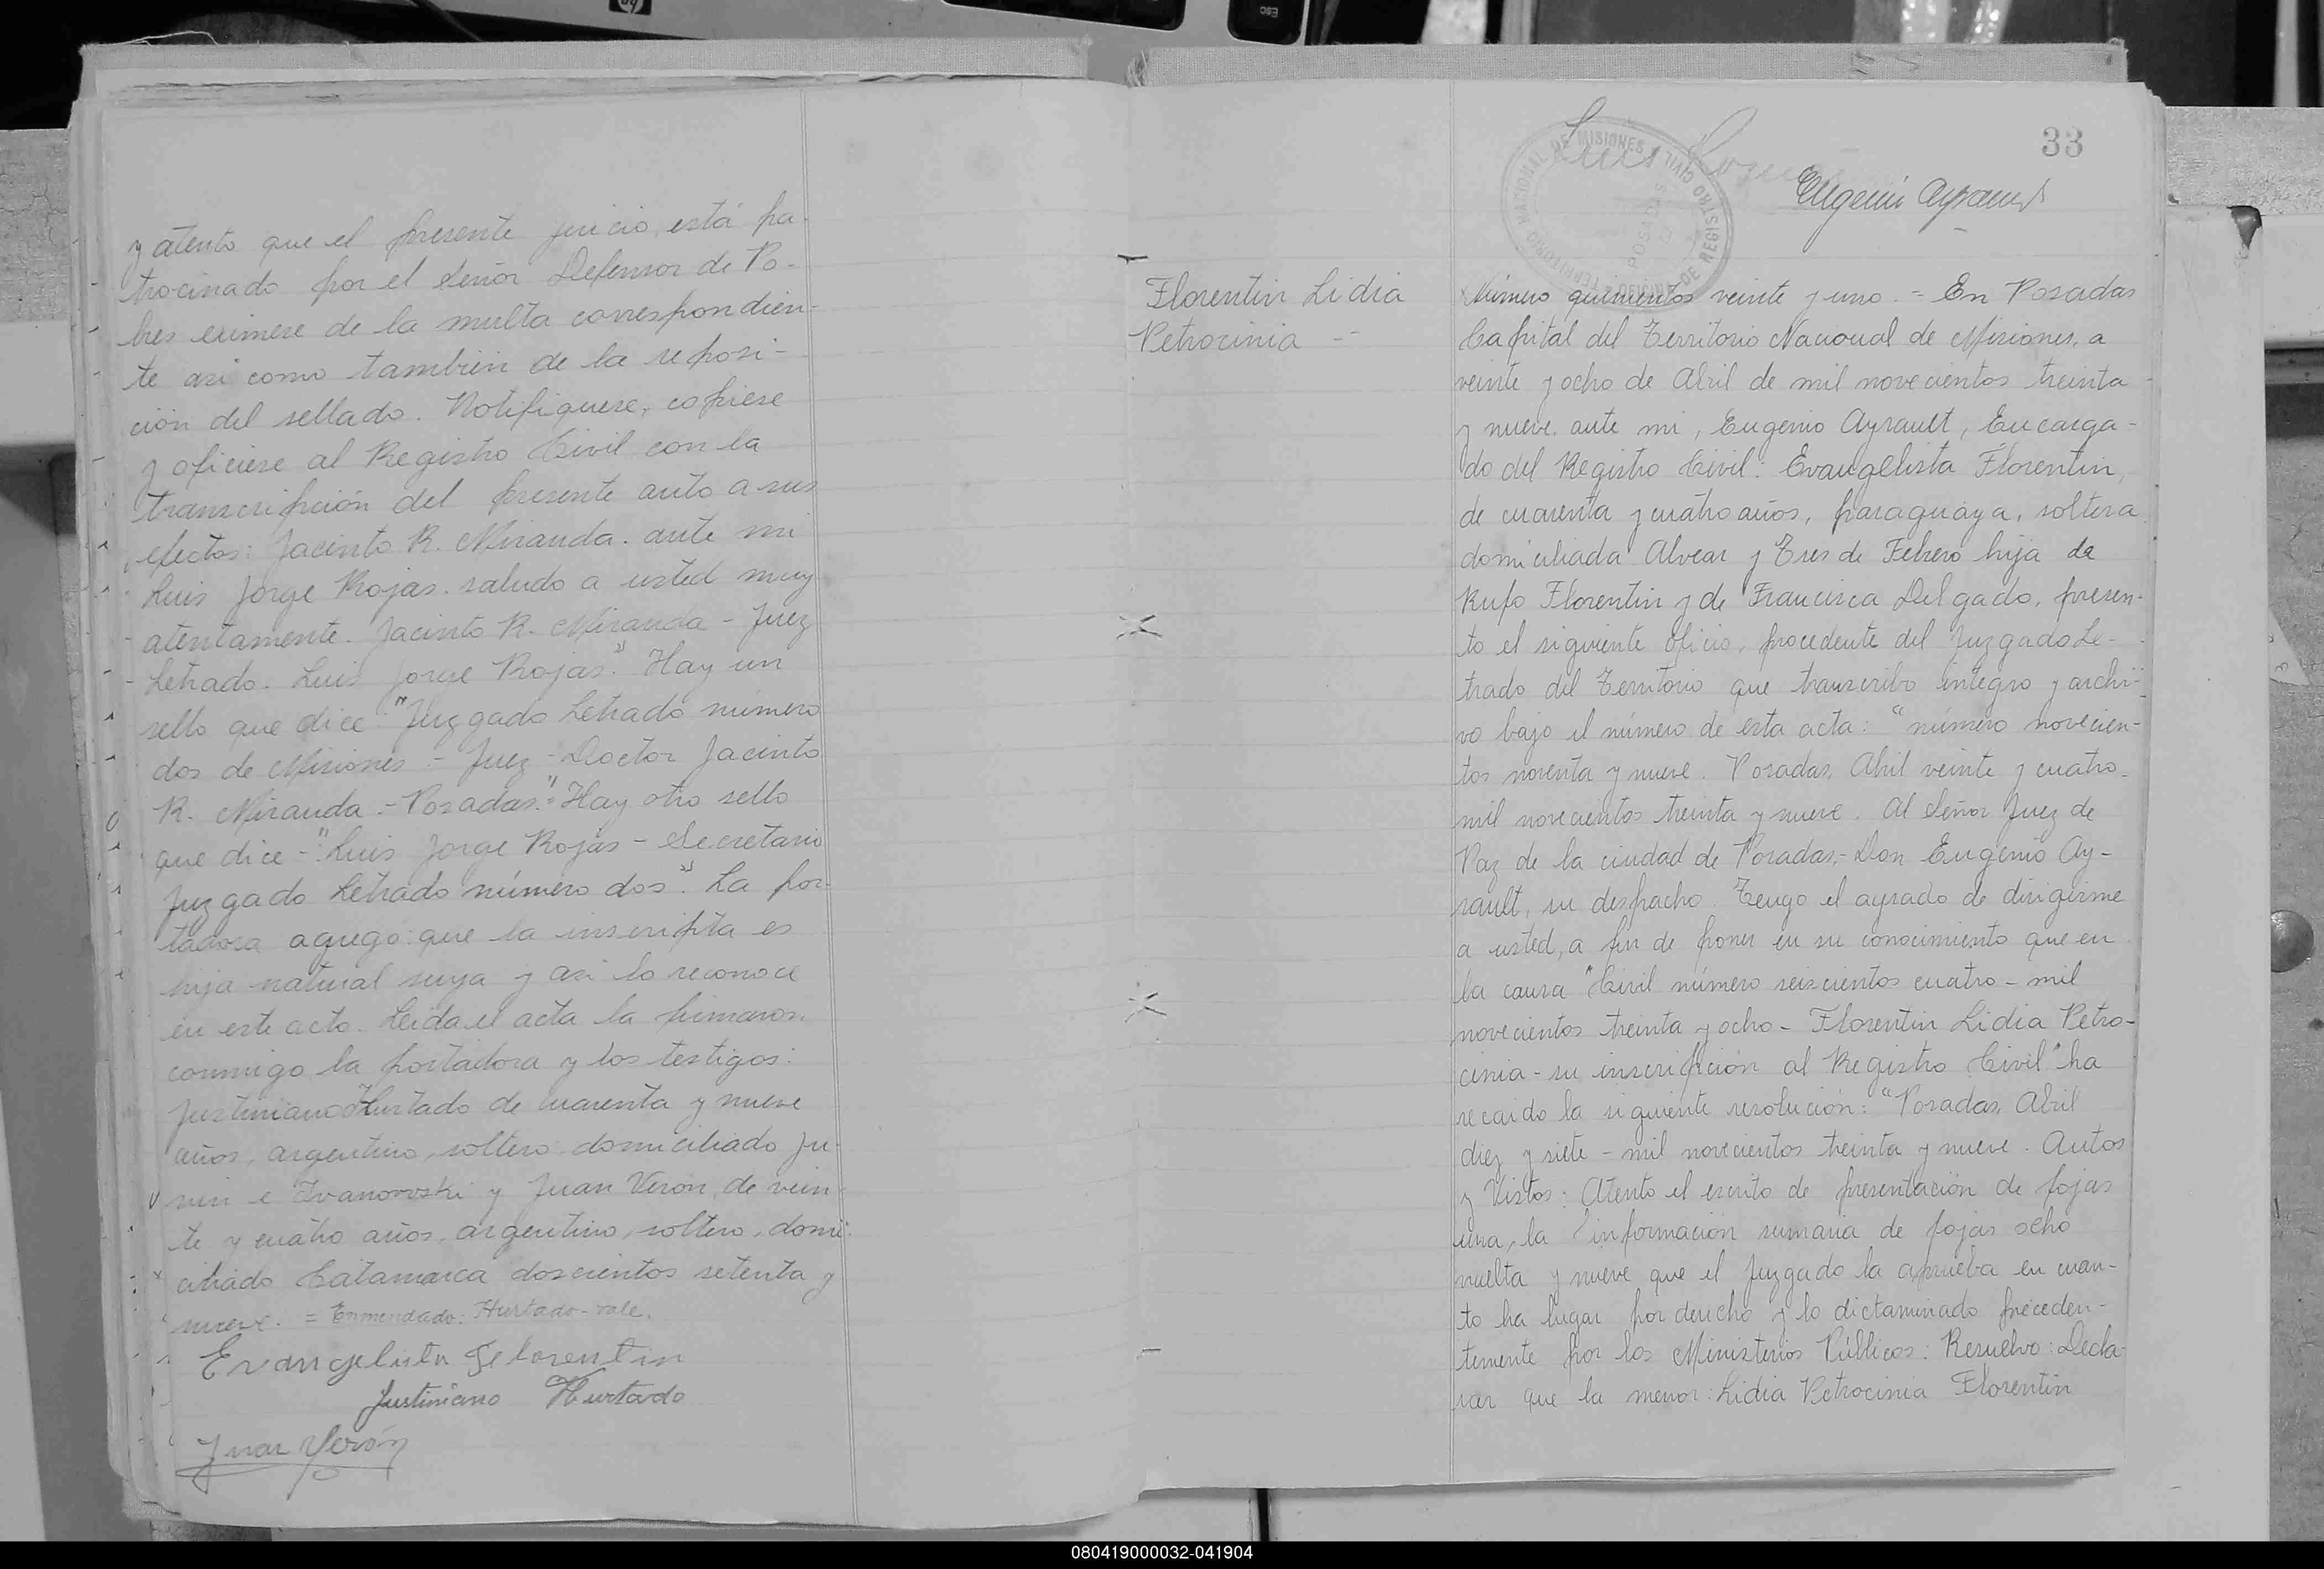 y atento que el presente juicio, está pa-
trocinado por el Señor Defensor de Po-
bres eximese de la multa correspondien-
te asi como tambien de la reposi-
ción del sellado. Notifiquese, copiese
y oficiese al Registro Civil con la
transcripción del presente auto a sus
efectos: Jacinto R. Miranda. ante mi
Luis Jorge Rojas. saludo a usted muy
atentamente. Jacinto R. Miranda - Juez
Letrado. Luis Jorge Rojas". Hay un
sello que dice: "Juzgado Letrado número
dos de Misiones - Juez - Doctor Jacinto
R. Miranda - Posadas." Hay otro sello
que dice - "Luis Jorge Rojas - Secretario
Juzgado Letrado número dos". La por-
tadora agregó: que la inscripta es
hija natural suya y asi lo reconoce
en este acto. Leida el acta la firmaron
conmigo la portadora y los testigos:
Justiniano Hurtado de cuarenta y nueve
años, argentino, soltero, domiciliado Ju-
nin e Ivanowski y Juan Veron, de vein-
te y cuatro años, argentino, soltero, domi-
ciliado Catamarca doscientos setenta y
nueve. = Enmendado: Hurtado - vale.
Evangelista Florentin
Justiniano Hurtado
Juan Verón
33
Eugenio Ayrault
TERRITORIO NACIONAL DE MISIONES
OFICINA DE REGISTRO CIVIL
POSADAS
Florentin Lidia
Petrocinia -
Número quinientos veinte y uno. - En Posadas
Capital del Territorio Nacional de Misiones, a
veinte y ocho de Abril de mil novecientos treinta
y nueve, ante mi, Eugenio Ayrault, Encarga-
do del Registro Civil: Evangelista Florentin,
de cuarenta y cuatro años, paraguaya, soltera
domiciliada Alvear y Tres de Febrero hija de
Rufo Florentin y de Francisca Delgado, presen-
to el siguiente oficio, procedente del Juzgado Le-
trado del Territorio que transcribo integro y archi-
vo bajo el número de esta acta: "número novecien-
tos noventa y nueve. Posadas, Abril veinte y cuatro
mil novecientos treinta y nueve. Al Señor Juez de
Paz de la ciudad de Posadas,- Don Eugenio Ay-
rault, su despacho. Tengo el agrado de dirigirme
a usted, a fin de poner en su conocimiento que en
la causa "Civil número seiscientos cuatro - mil
novecientos treinta y ocho - Florentin Lidia Petro-
cinia - su inscripción al Registro Civil" ha
recaido la siguiente resolución: "Posadas, Abril
diez y siete - mil novecientos treinta y nueve. Autos
y Vistos: Atento el escrito de presentación de fojas
una, la información sumaria de fojas ocho
vuelta y nueve que el Juzgado la aprueba en cuan-
to ha lugar por derecho y lo dictaminado preceden-
temente por los Ministerios Públicos: Resuelvo: Decla-
rar que la menor: Lidia Petrocinia Florentin